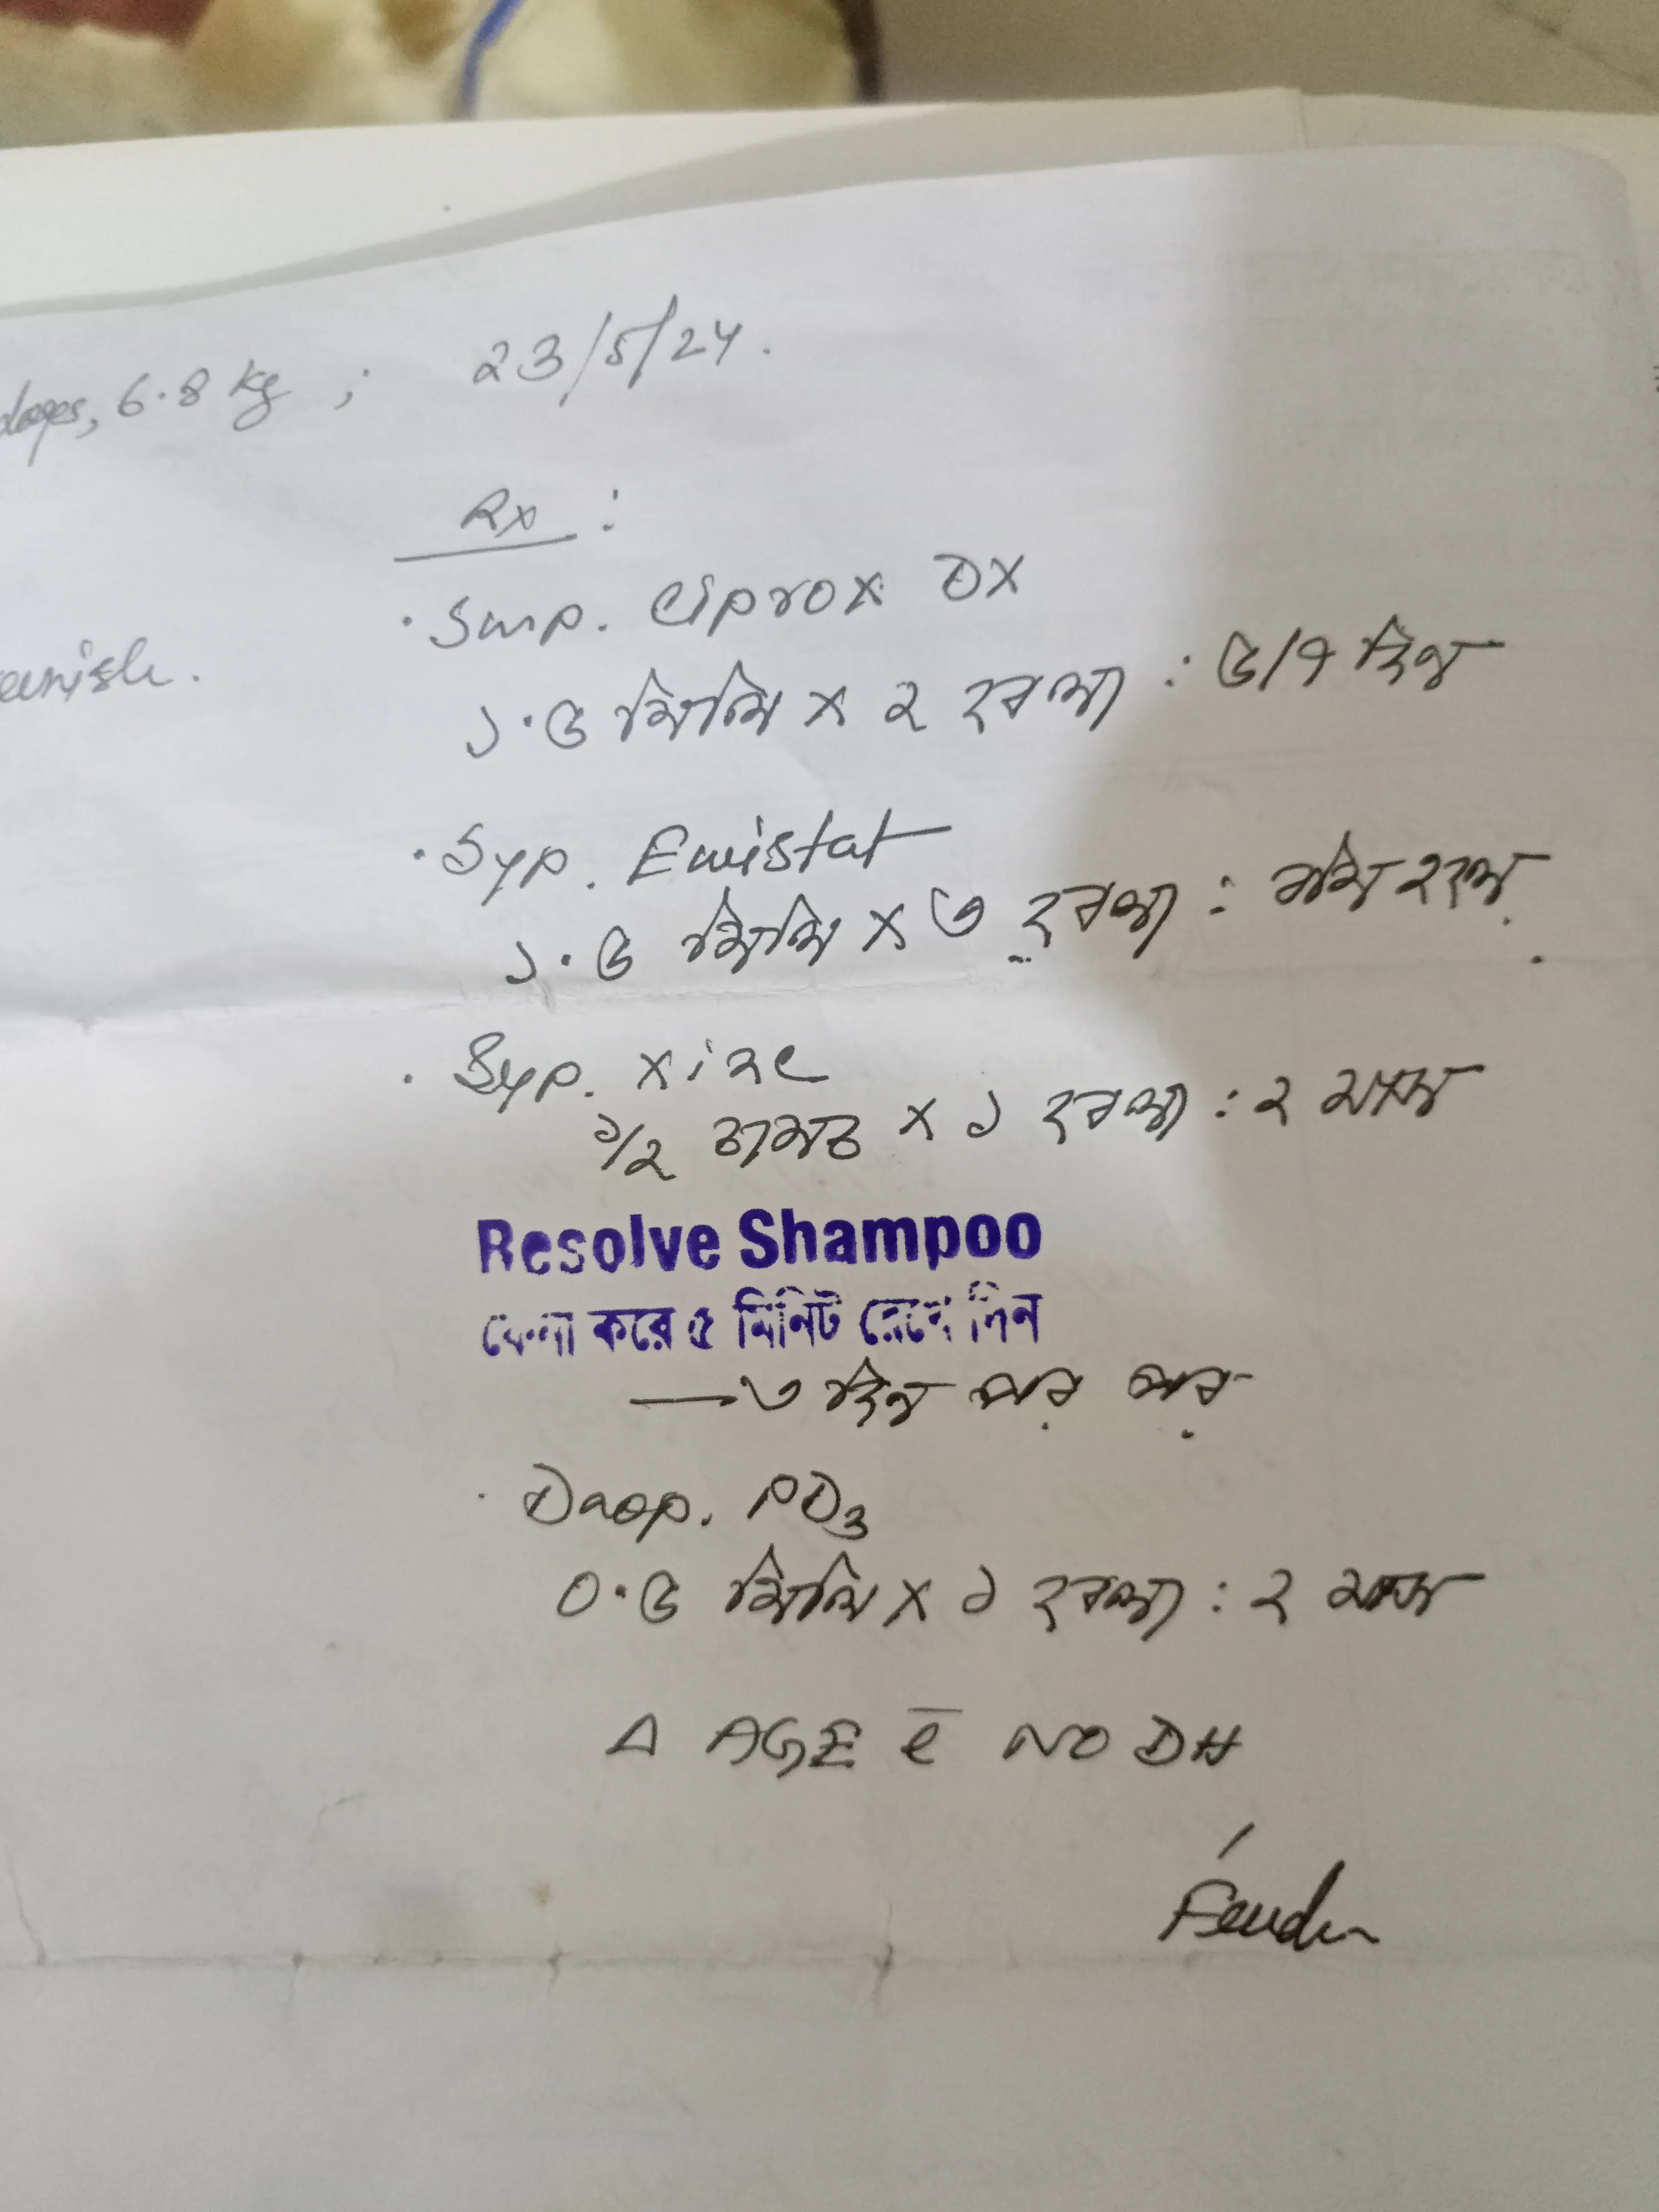 days, 6.8 kg ; 23/5/24.
Rx :
· Susp. Ciprox DX
১.৫ মিলি x ২ বেলা : ৫/৭ দিন
· Syp. Emistat
১.৫ মিলি x ৩ বেলা : বমি হলে
· Syp. Xinc
১/২ চামচ x ১ বেলা : ২ মাস
Resolve Shampoo
ফেনা করে ৫ মিনিট রেখে দিন
→ ৩ দিন পর পর
· Drop. PD3
0.৫ মিলি x ১ বেলা : ২ মাস
Δ AGE c̄ NO DH